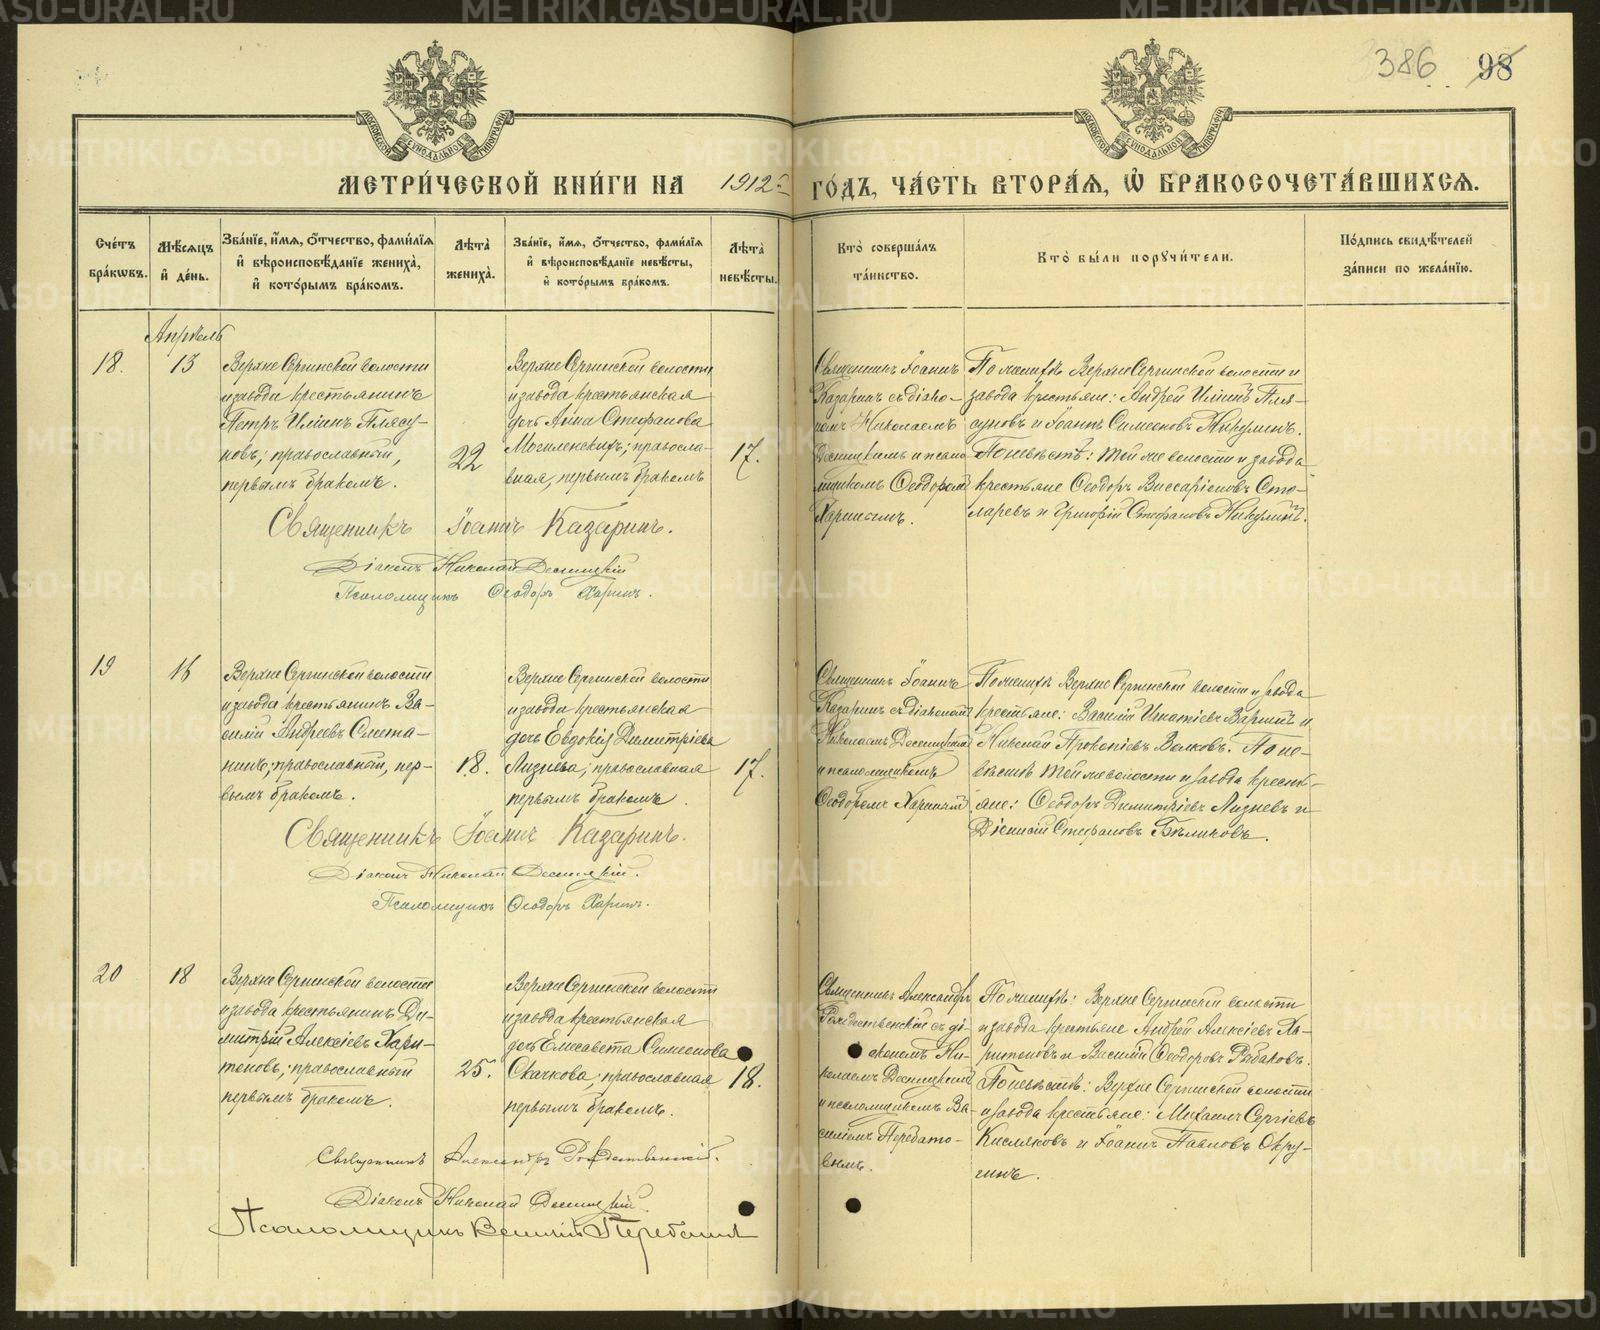 386 98
МЕТРИ́ЧЕСКОЙ КНИ́ГИ НА 1912 ГО́ДЪ, ЧА́СТЬ ВТОРА́Я, Ѿ БРАКОСОЧЕТА́ВШИХСЯ.
Сче́тъ бра́кѡвъ.
Мѣ́сяцъ и де́нь.
Зва́нїе, и́мя, ѻ́тчество, фами́лїя и вѣроисповѣ́данїе жениха̀, и кото́рымъ бра́комъ.
Лѣта̀ жениха̀.
Зва́нїе, и́мя, ѻ́тчество, фами́лїя и вѣроисповѣ́данїе невѣ́сты, и кото́рымъ бра́комъ.
Лѣта̀ невѣ́сты.
Кто̀ соверша́лъ та́инство.
Кто̀ бы́ли порꙋчи́тели.
По́дпись свидѣ́телей за́писи по жела́нїю.
Апрѣль
18.
13
Верхне Сергинской волости
и завода крестьянинъ
Петръ Ильинъ Плясу-
новъ; православный,
первымъ бракомъ.
22
Верхне Сергинской волости
и завода крестьянская
дочь Анна Стефанова
Могиленскихъ; правосла-
вная, первымъ бракомъ
17.
Священникъ Іоаннъ
Казаринъ съ діако-
номъ Николаемъ
Десницкимъ и псало-
мщикомъ Ѳеодоромъ
Харинымъ.
По женихѣ Верхне Сергинской волости и
завода крестьяне: Андрей Ильинъ Пля-
суновъ и Іоаннъ Симеоновъ Никулинъ.
По невѣстѣ: той же волости и завода
крестьяне Ѳеодоръ Виссаріоновъ Сто-
ларевъ и Григорій Стефановъ Никулинъ.
Священникъ Іоаннъ Казаринъ.
Діаконъ Николай Десницкій
Псаломщикъ Ѳеодоръ Харинъ.
19
16
Верхне Сергинской волости
и завода крестьянинъ Ва-
силій Андреевъ Смета-
нинъ; православный, пер-
вымъ бракомъ.
18.
Верхне Сергинской волости
и завода крестьянская
дочь Евдокія Димитріева
Лизнева; православная
первымъ бракомъ.
17.
Священникъ Іоаннъ
Казаринъ съ діакономъ
Николаемъ Десницкимъ
и псаломщикомъ
Ѳеодоромъ Харинымъ
По женихѣ Верхне Сергинской волости и завода
крестьяне: Василій Игнатіевъ и
Николай Прокопіевъ Волковъ. По не-
вѣстѣ той же волости и завода кресть-
яне: Ѳеодоръ Димитріевъ Лизневъ и
Діонисій Стефановъ Бѣликовъ.
Священникъ Іоаннъ Казаринъ.
Діаконъ Николай Десницкій.
Псаломщикъ Ѳеодоръ Харинъ.
20
18
Верхне Сергинской волости
и завода крестьянинъ Ди-
митрій Алексіевъ Хари-
тоновъ; православный
первымъ бракомъ.
25.
Верхне Сергинской волости
и завода крестьянская
дочь Елисавета Симеонова
Скачкова; православная
первымъ бракомъ.
18.
Священникъ Александръ
Рождественскій съ ді-
акономъ Ни-
колаемъ Десницкимъ
и псаломщикомъ Ва-
силіемъ Передато-
вымъ.
По женихѣ: Верхне Сергинской волости
и завода крестьяне Андрей Алексіевъ Ха-
ритоновъ и Василій Ѳеодоровъ Рыбаковъ.
По невѣстѣ: Верхне Сергинской волости
и завода крестьяне: Михаилъ Сергіевъ
Кисляковъ и Іоаннъ Павловъ Окру-
гинъ.
Священникъ Александръ Рождественскій.
Діаконъ Николай Десницкій.
Псаломщикъ Василій
METRIKI.GASO-URAL.RU